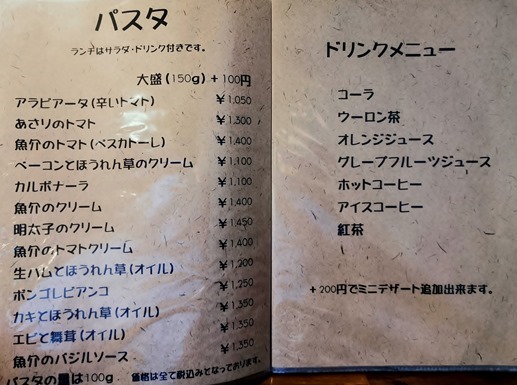 パスタ
ランチはサラダ・ドリンク付きです。
大盛(150g)+100円
アラビアータ(辛いトマト) ¥1,050
あさりのトマト ¥1,300
魚介のトマト(ペスカトーレ) ¥1,400
ベーコンとほうれん草のクリーム ¥1,100
カルボナーラ ¥1,100
魚介のクリーム ¥1,400
明太子のクリーム ¥1,450
魚介のトマトクリーム ¥1,400
生ハムとほうれん草(オイル) ¥1,200
ボンゴレビアンコ ¥1,250
カキとほうれん草(オイル) ¥1,350
エビと舞茸(オイル) ¥1,350
魚介のバジルソース ¥1,350
パスタの量は100g. 価格は全て税込みとなっております。
ドリンクメニュー
コーラ
ウーロン茶
オレンジジュース
グレープフルーツジュース
ホットコーヒー
アイスコーヒー
紅茶
+200円でミニデザート追加出来ます。